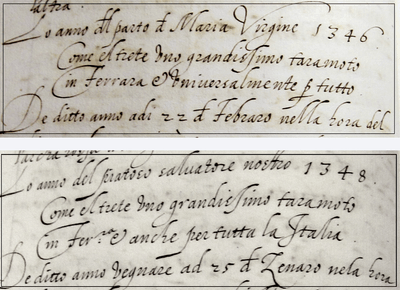 laltra
Lo anno dl parto d Maria Virgine 1346
Come el trete vno grandissimo taramoto
in Ferrara & vniversalmente p tutto
De ditto anno adi 22 d Febraro nella hora del
Lo anno del pratoso salvatore nostro 1348.
Come el trete vno grandissimo taramoto
in Ferra & anche per tutta la Italia.
De ditto anno vegnare ad 25 d Zenaro nela hora